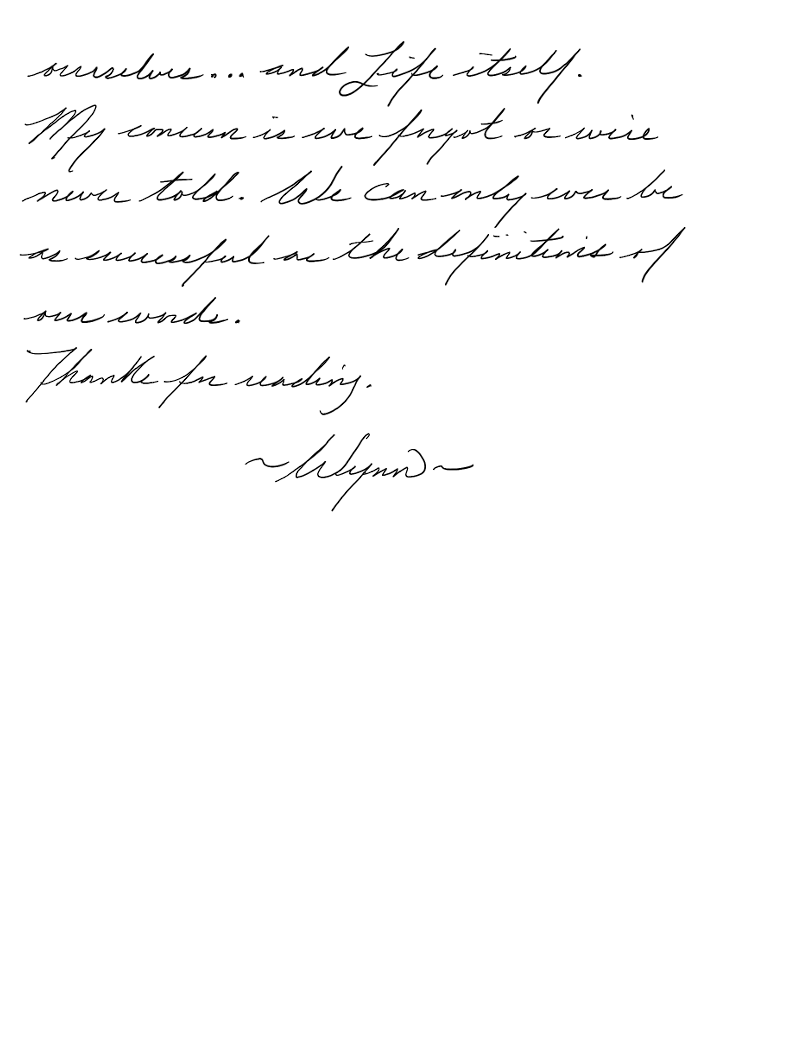 ourselves... and Life itself.
My concern is we forgot or were
never told. We can only ever be
as successful as the definitions of
our words.
Thanks for reading.
~Wynn~